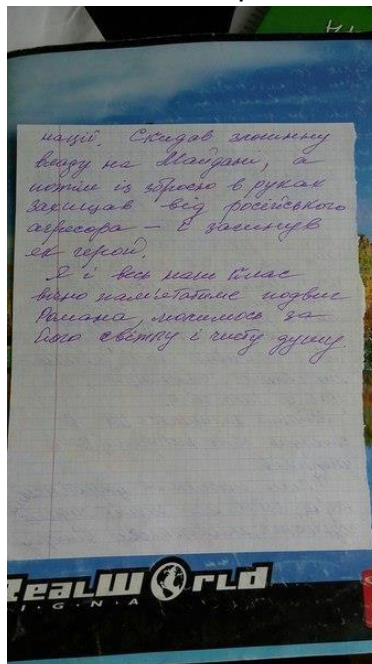 нації. Скидав злочинну
владу на Майдані, а
потім із зброєю в руках
захищав від російського
агресора – і загинув
як герой.
Я і весь наш клас
вічно пам'ятатиме подвиг
Романа, молимось за
його світлу і чисту душу
Real World
I·G·N·A